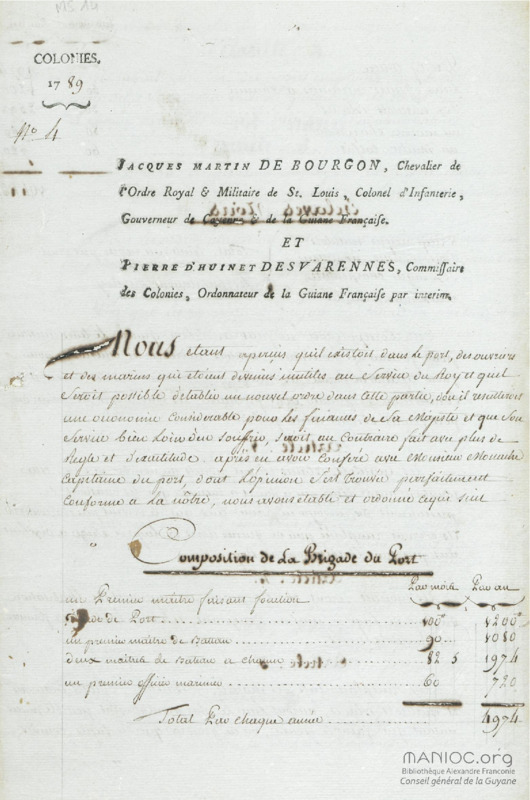 COLONIES.
1789
N° 4
JACQUES MARTIN DE BOURGON, Chevalier de
l'Ordre Royal & Militaire de St. Louis, Colonel d'Infanterie,
Gouverneur de Cayenne & de la Guiane Française.
ET
PIERRE D'HUINET DESVARENNES, Commissaire
des Colonies, Ordonnateur de la Guiane Française par interim.
Nous etant aperçus qu'il existoit dans le port, des ouvriers
et des marins qui etoient devenus inutiles au Service du Roy et quil
Seroit possible detablir un nouvel ordre dans cette partie, dou il resulteroit
une œconomie considerable pour les finances de Sa Majesté et que Son
Service bien loin den souffrir, seroit au Contraire fait avec plus de
Regle et d'exactitude après en avoir conferé avec Monsieur
Capitaine du port, dont Lopinion s'est trouvée parfaitement
Conforme a La nôtre, nous avons etabli et ordonné ce qui suit
Composition de La Brigade du Port
Par mois Par an
un Premier maitre faisant fonction
de Port 100 1200
un premier maitre de Bateau 90 1080
deux maitres de Bateau a chacun 82 5 1974
un premier officier marinier 60 720
Total Par chaque année 4974
MANIOC.org
Bibliothèque Alexandre Franconie
Conseil général de la Guyane